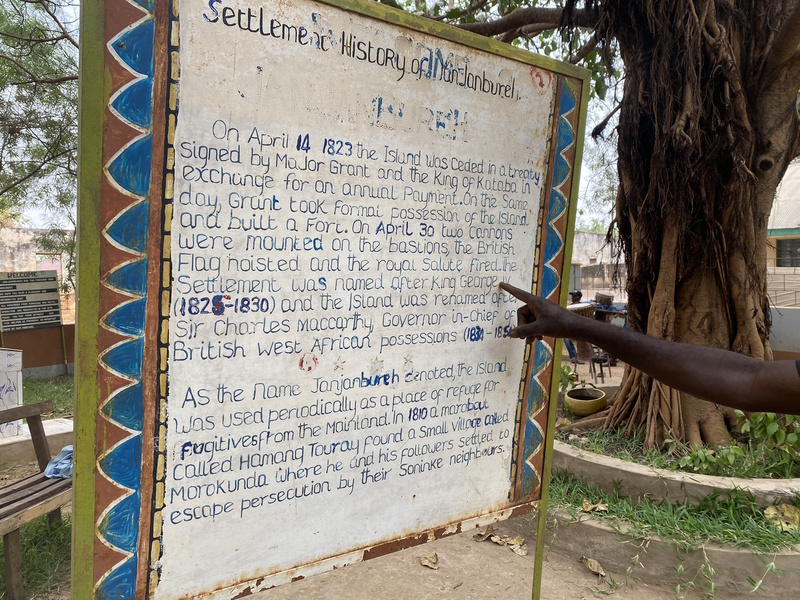 Settlement History of Janjanbureh
On April 14 1823 the Island was ceded in a treaty
signed by Major Grant and the King of Kataba in
exchange for an annual Payment. On the Same
day, Grant took formal possession of the Island
and built a Fort. On April 30 two cannons
were mounted on the bastions, the British
Flag hoisted and the royal Salute fired. the
Settlement was named after King George
(1825-1830) and the Island was renamed after
Sir Charles Maccarthy, Governor in-chief of
British West African possessions
As the Name Janjanbureh denoted, the Island
was used periodically as a place of refuge for
fugitives from the Mainland. In 1810 a marabout
called Hamang Touray found a Small village called
Morokunda where he and his followers settled to
escape persecution by their Soninke neighbours.
WELCOME